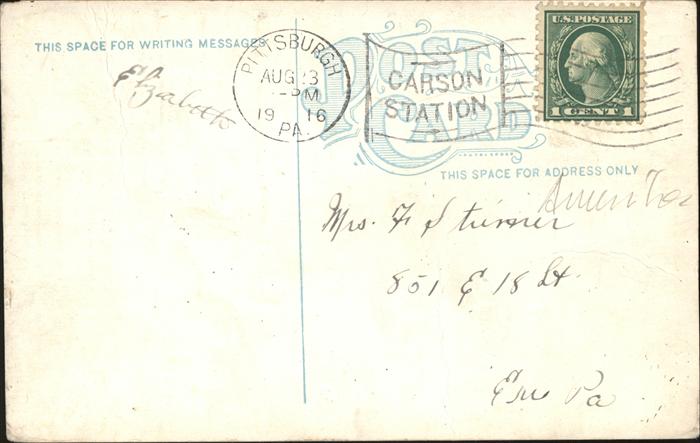 THIS SPACE FOR WRITING MESSAGES
Elizabeth
PITTSBURGH
AUG 23
PM
19 16
PA.
POSTAL CARD
CARSON
STATION
U.S. POSTAGE
1 CENT 1
THIS SPACE FOR ADDRESS ONLY
Mrs. F
851 E 18 St
Pa